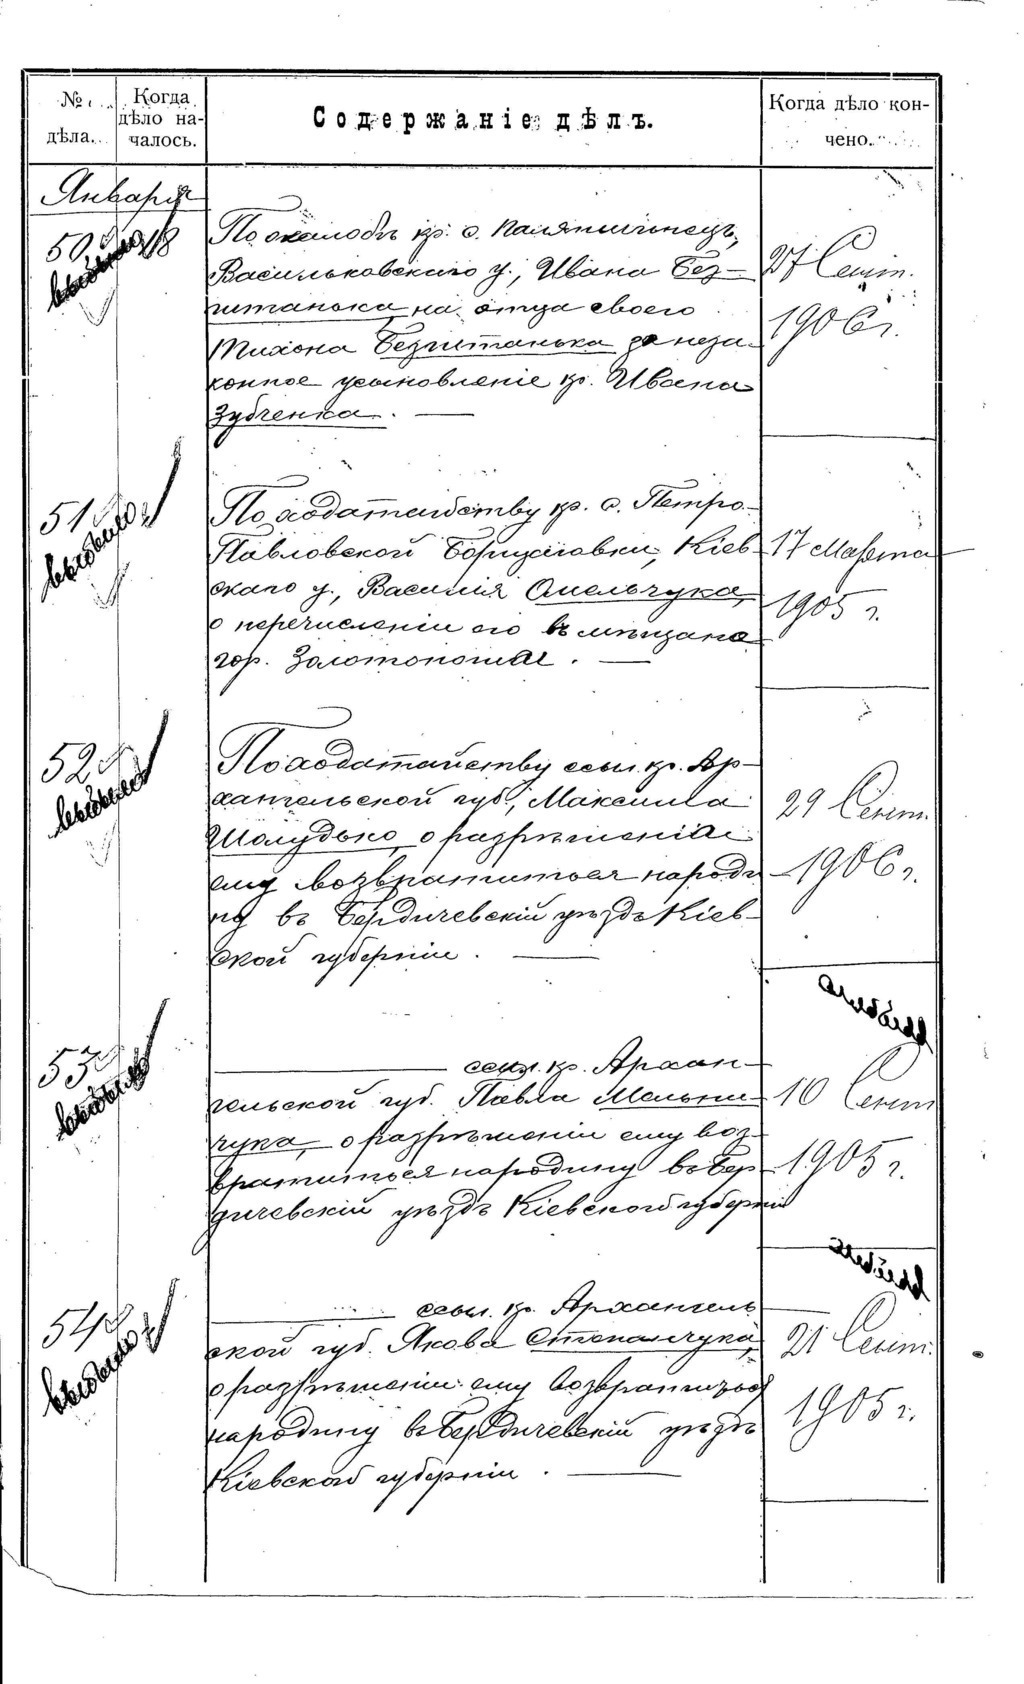 №
дѣла.
Когда
дѣло на-
чалось.
Содержаніе дѣлъ.
Когда дѣло кон-
чено.
Января
50 18
выбыло
По жалобѣ кр. с.
Васильковскаго у., Ивана Без-
питанька на отца своего
Тихона Безпитанька за неза-
конное усыновленіе кр. Ивана
Зубченка. —
27 Сент.
1906 г.
51
выбыло
По ходатайству кр. с. Петро-
Павловской Борщаговки, Кіев-
скаго у., Василія Омельчука,
о перечисленіи его въ мѣщане
гор. Золотоноши. —
17 Марта
1905 г.
52
выбыло
По ходатайству ссыл. кр. Ар-
хангельской губ., Максима
Шолудько, о разрѣшеніи
ему возвратиться на роди-
ну въ Бердичевскій уѣздъ Кіев-
ской губерніи. —
29 Сент.
1906 г.
53
выбыло
— ссыл. кр. Архан-
гельской губ. Павла Мельни-
чука, о разрѣшеніи ему воз-
вратиться на родину въ Бер-
дичевскій уѣздъ Кіевской губерніи
выбыло
10 Сент
1905 г.
54
выбыло
— ссыл. кр. Архангель
ской губ. Якова Степанчука,
о разрѣшеніи ему возвратиться
на родину въ Бердичевскій уѣздъ
Кіевской губерніи. —
выбыло
21 Сент.
1905 г.